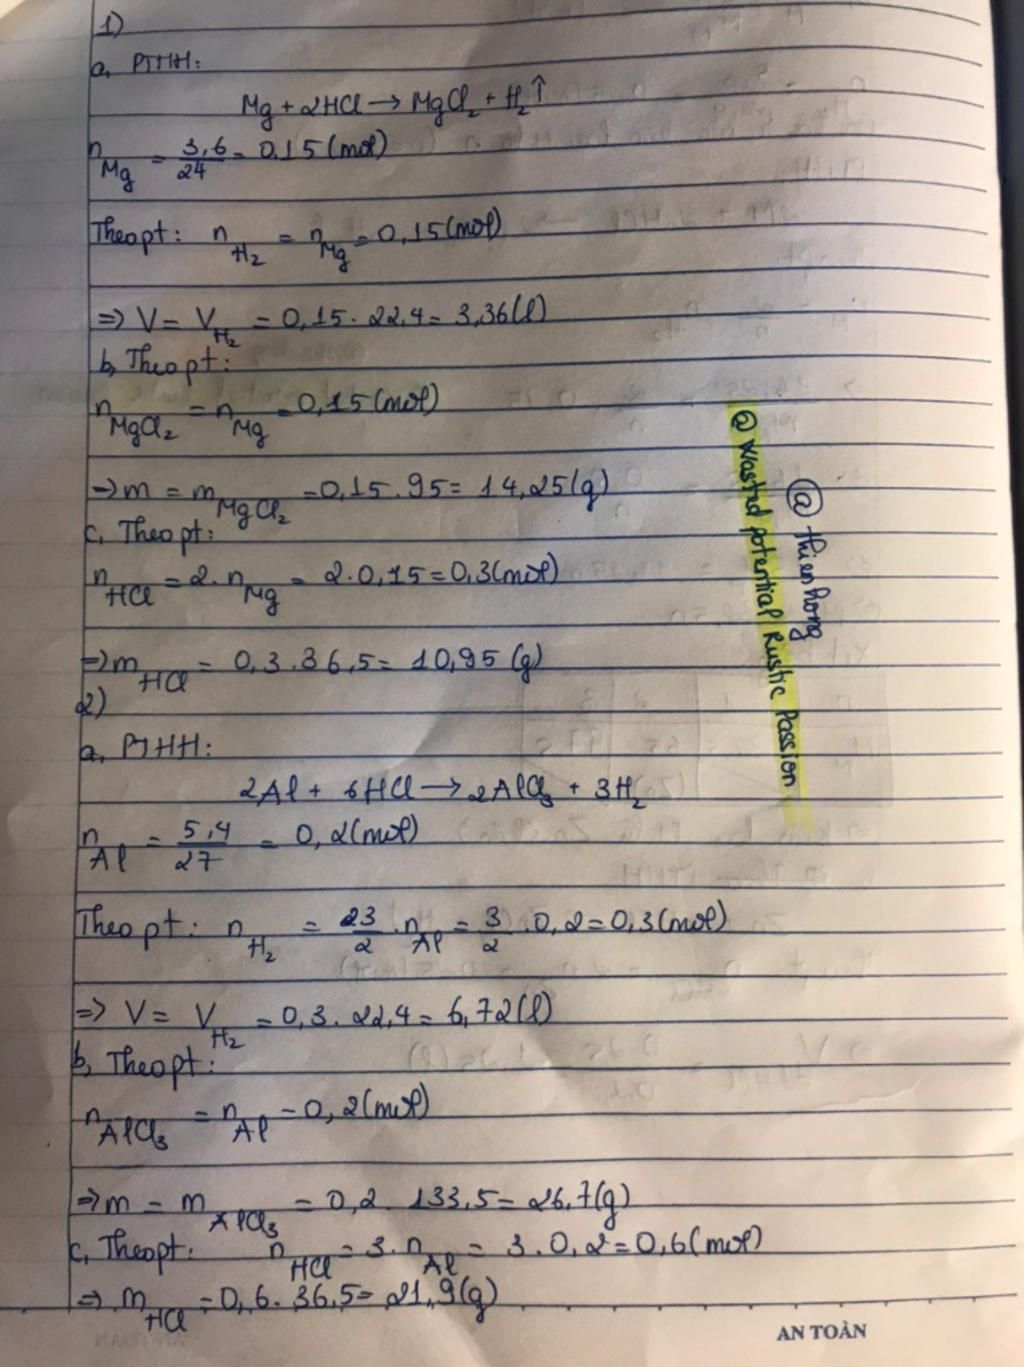 1)
a, PTHH:
Mg + 2HCl → MgCl₂ + H₂↑
n_Mg = 3,6/24 = 0,15 (mol)
Theo pt: n_H₂ = n_Mg = 0,15 (mol)
⇒ V = V_H₂ = 0,15 . 22,4 = 3,36 (l)
b, Theo pt:
n_MgCl₂ = n_Mg = 0,15 (mol)
→ m = m_MgCl₂ = 0,15 . 95 = 14,25 (g)
c, Theo pt:
n_HCl = 2. n_Mg = 2. 0,15 = 0,3 (mol)
⇒ m_HCl = 0,3 . 36,5 = 10,95 (g)
2)
a, PTHH:
2Al + 6HCl → 2AlCl₃ + 3H₂
n_Al = 5,4/27 = 0,2 (mol)
Theo pt: n_H₂ = 23/2 . n_Al = 3/2 . 0,2 = 0,3 (mol)
⇒ V = V_H₂ = 0,3 . 22,4 = 6,72 (l)
b, Theo pt:
n_AlCl₃ = n_Al = 0,2 (mol)
⇒ m = m_AlCl₃ = 0,2 . 133,5 = 26,7 (g)
c, Theo pt: n_HCl = 3. n_Al = 3. 0,2 = 0,6 (mol)
⇒ m_HCl = 0,6 . 36,5 = 21,9 (g)
@ thienhong
@ Wasted potential Rustic Passion
AN TOÀN